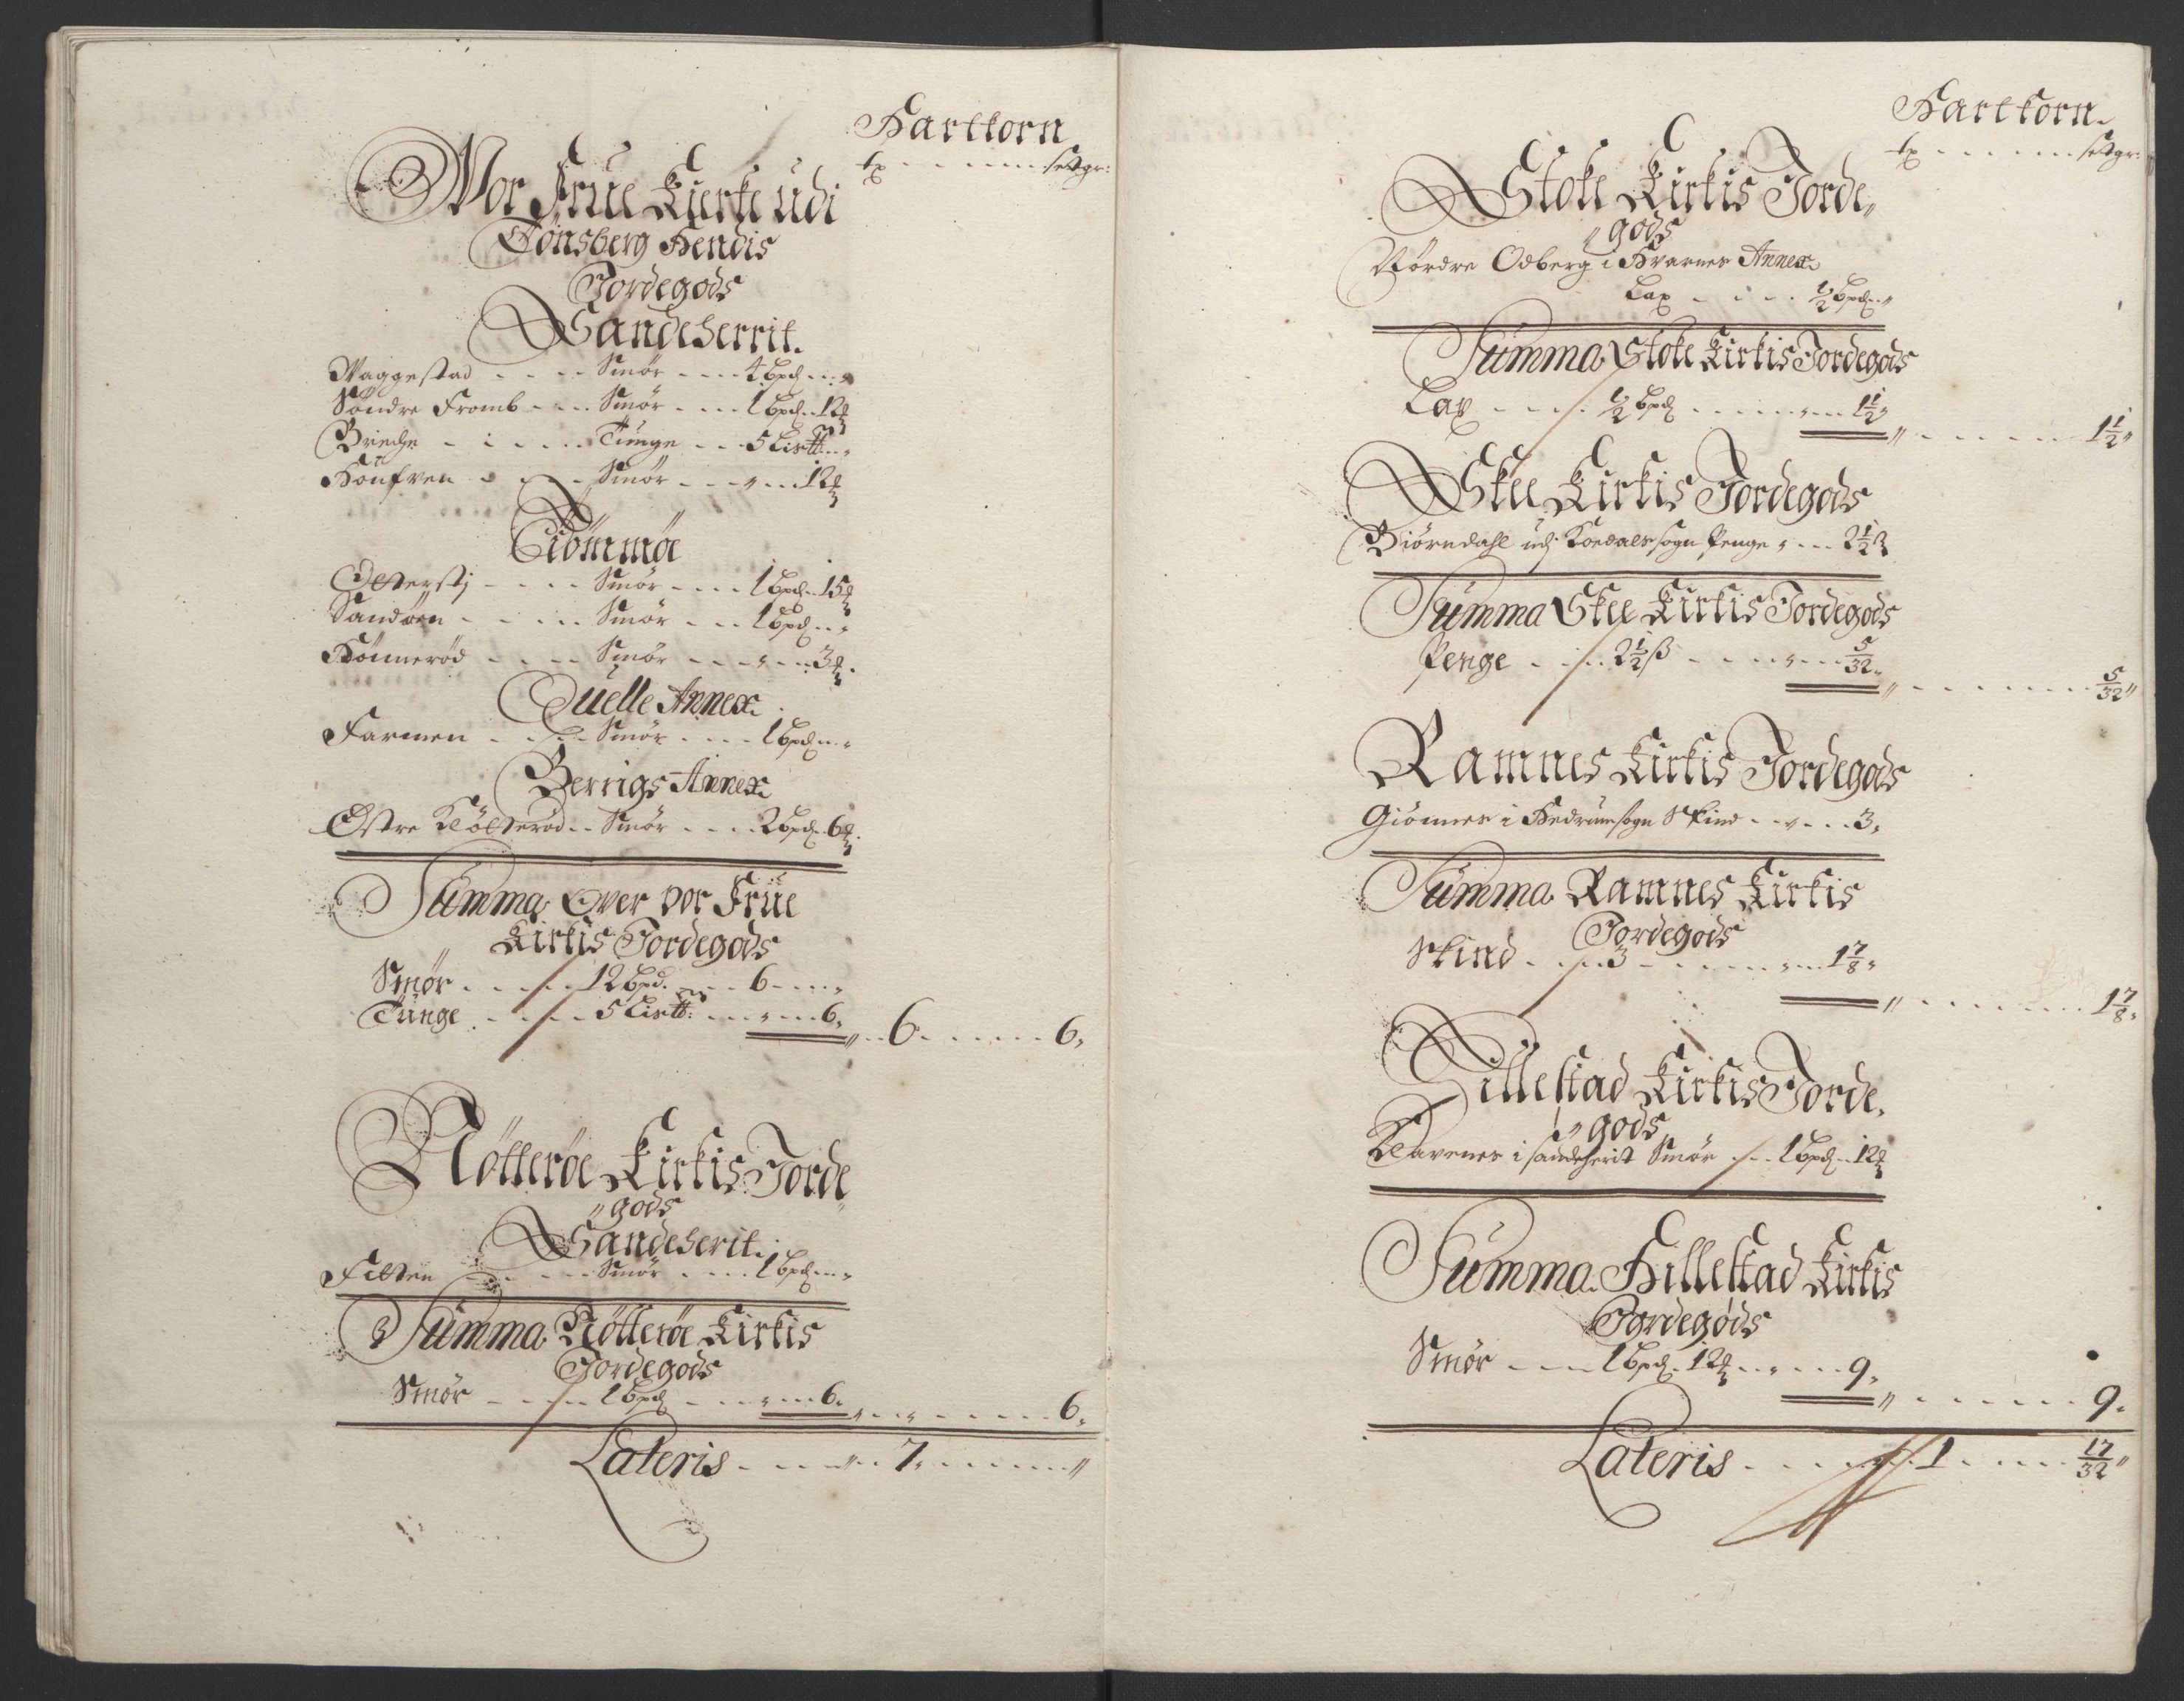 Hartkorn
tp - - - - - - settgr:
Vor Frue Kierke udi
Tønsberg Hendis
Jordegods
Sandeherrit.
Waggestad - - - - Smør - - - 4 bpd - - "
Søndre Fromb - - - Smør - - - 1 bpd - 12
Brieche - - - - - Tunge - - 5 List - - "
Houfven - - - - Smør - - - " - - 12
Tiømmøe
Smør - - - 1 bpd - 15
Sandøen - - - - Smør - - 1 bpd - - "
Hønnerød - - - - Smør - - - " - - 3
Quelle Annex
Farmen - - - - Smør - - - 1 bpd - - "
Berrigs Annex
Østre Kløllerød - - Smør - - - 2 bpd - 6
Summa Over vor Frue
Kirkis Jordegods
Smør - - - - 12 bpd. - - - 6 - - - "
Tunge - - - - 5 List: - - - " - - 6,
" - - 6 - - - - - 6,
Nøtterøe Kirkis Jorde
" gods
Sandeherit.
Smør - - - 1 bpd - - "
Summa Nøtterøe Kirkis
Jordegods
Smør - - - - 1 bpd - - - " - - 6,
" - - " - - - - - 6,
Lateris - - - " - - 7 - - - - - "
Hartkorn.
tp - - - - - - settgr:
Stoke Kirkis Jorde,,
" gods
Nørdre Odberg i Hvarnes Annex
Lax - - - - ½ bpd - "
Summa Stoke Kirkis Jordegods
Lax - - - - ½ bpd - - - - " - - 1½ "
" - - - - - - 1½ "
Skee Kirkis Jordegods
Biørndahl udj Koedals sogn Penge " - - - 2½ ß
Summa Skee Kirkis Jordegods
Penge - - - 2½ ß - - - - " - - 5/32 "
" - - - - - - - 5/32 "
Ramnes Kirkis Jordegods
Giønnes i Hedrum sogn Skind - - " - - 3,
Summa Ramnes Kirkis
Jordegods
Skind - - - 3 - - - - - " - - 1 7/8 "
" - - - - - - 1 7/8 "
Hillestad Kirkis Jorde,
" gods
Klavenes i sandeherit Smør - - - 1 bpd - 12
Summa Hillestad Kirkis
Jordegods
Smør - - - 1 bpd - 12 - - " - - 9,
" - - - - - - 9,
Lateris - - - - - " - 1 - - - - 17/32 "